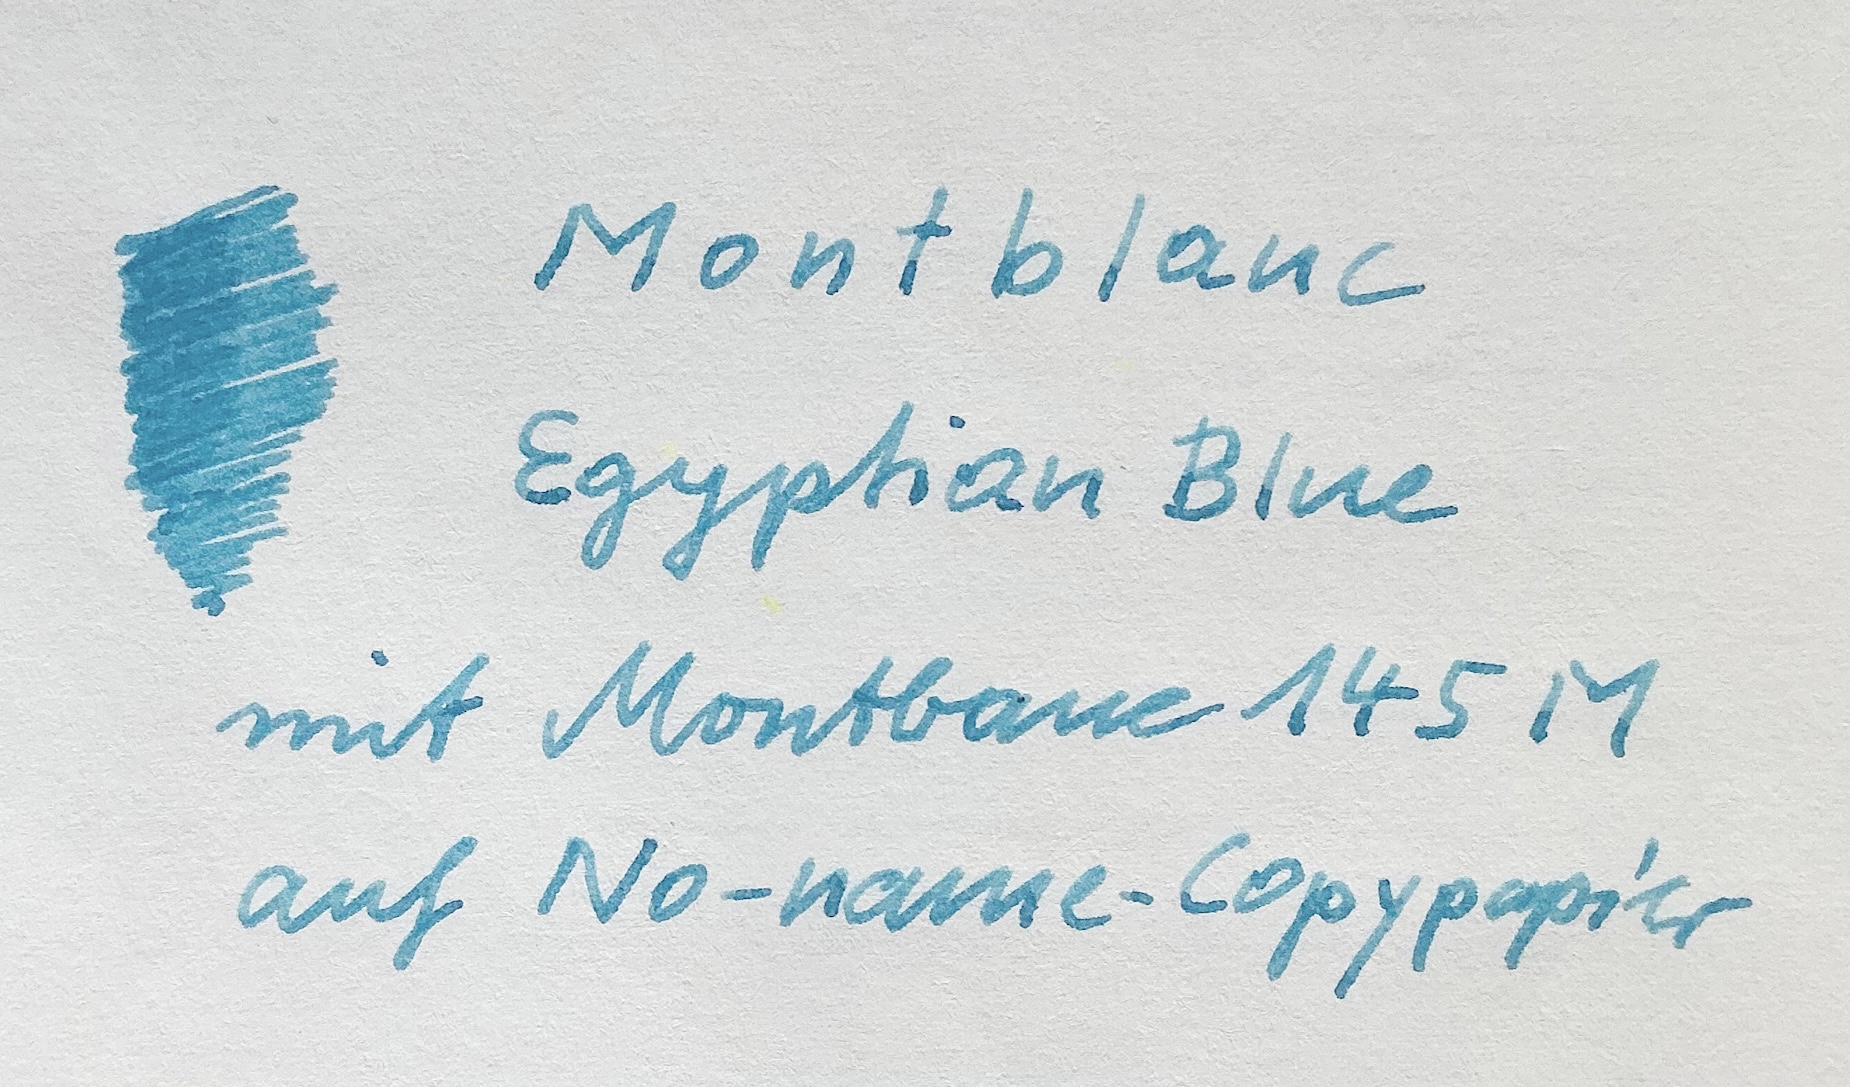 Montblanc
Egyptian Blue
mit Montbanc 145 M
auf No-name-Copypapier